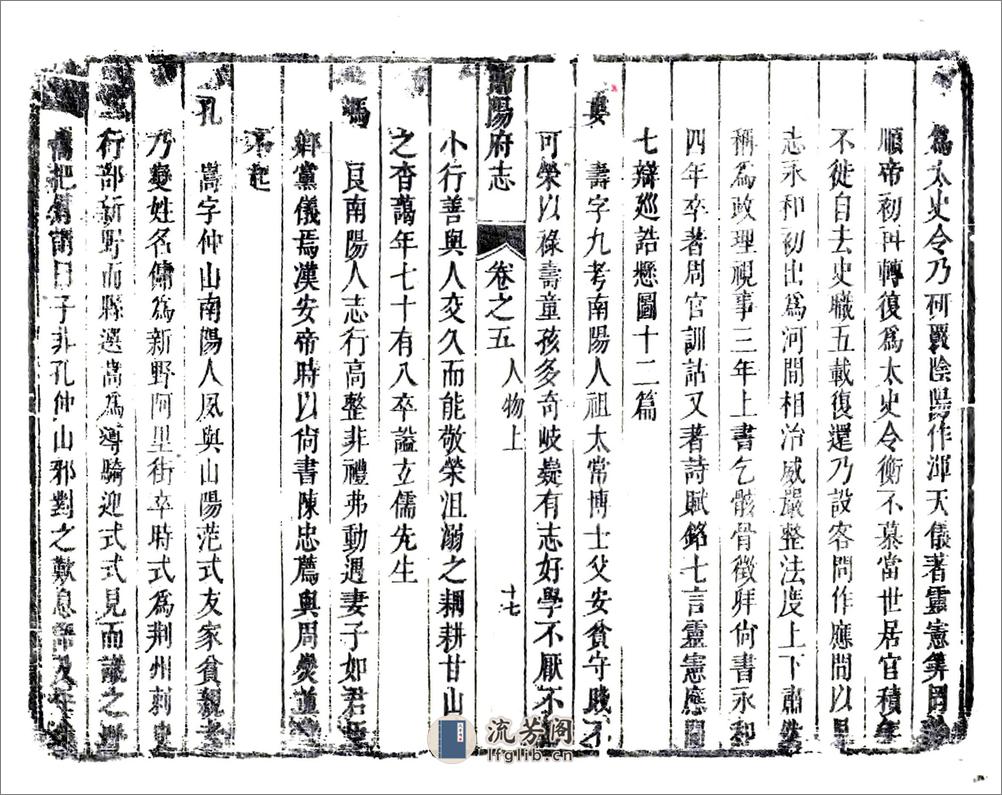 為太史令乃研覈陰陽作渾天儀著靈憲筭罔論
順帝初再轉復為太史令衡不慕當世居官積年
不徙自去史職五載復還乃設客問作應間以見
志永和初出為河間相治威嚴整法度上下肅然
稱為政理視事三年上書乞骸骨徵拜尚書永和
四年卒著周官訓詁又著詩賦銘七言靈憲應間
七辯巡誥懸圖十二篇
婁 壽字九考南陽人祖太常博士父安貧守賤不
可榮以祿壽童孩多奇岐嶷有志好學不厭不
南陽府志 卷之五 人物上 十七
小行善與人交久而能敬榮沮溺之耦耕甘山
之杳藹年七十有八卒謚立儒先生
馮 良南陽人志行高整非禮弗動遇妻子如君臣
鄉黨儀焉漢安帝時以尚書陳忠薦與周爕並
不起
孔 嵩字仲山南陽人夙與山陽范式友家貧親老
乃變姓名傭為新野阿里街卒時式為荆州刺史
行部新野而縣選嵩為導騎迎式式見而識之
把臂謂曰子非孔仲山邪對之歎息
流芳阁
lfglib.cn